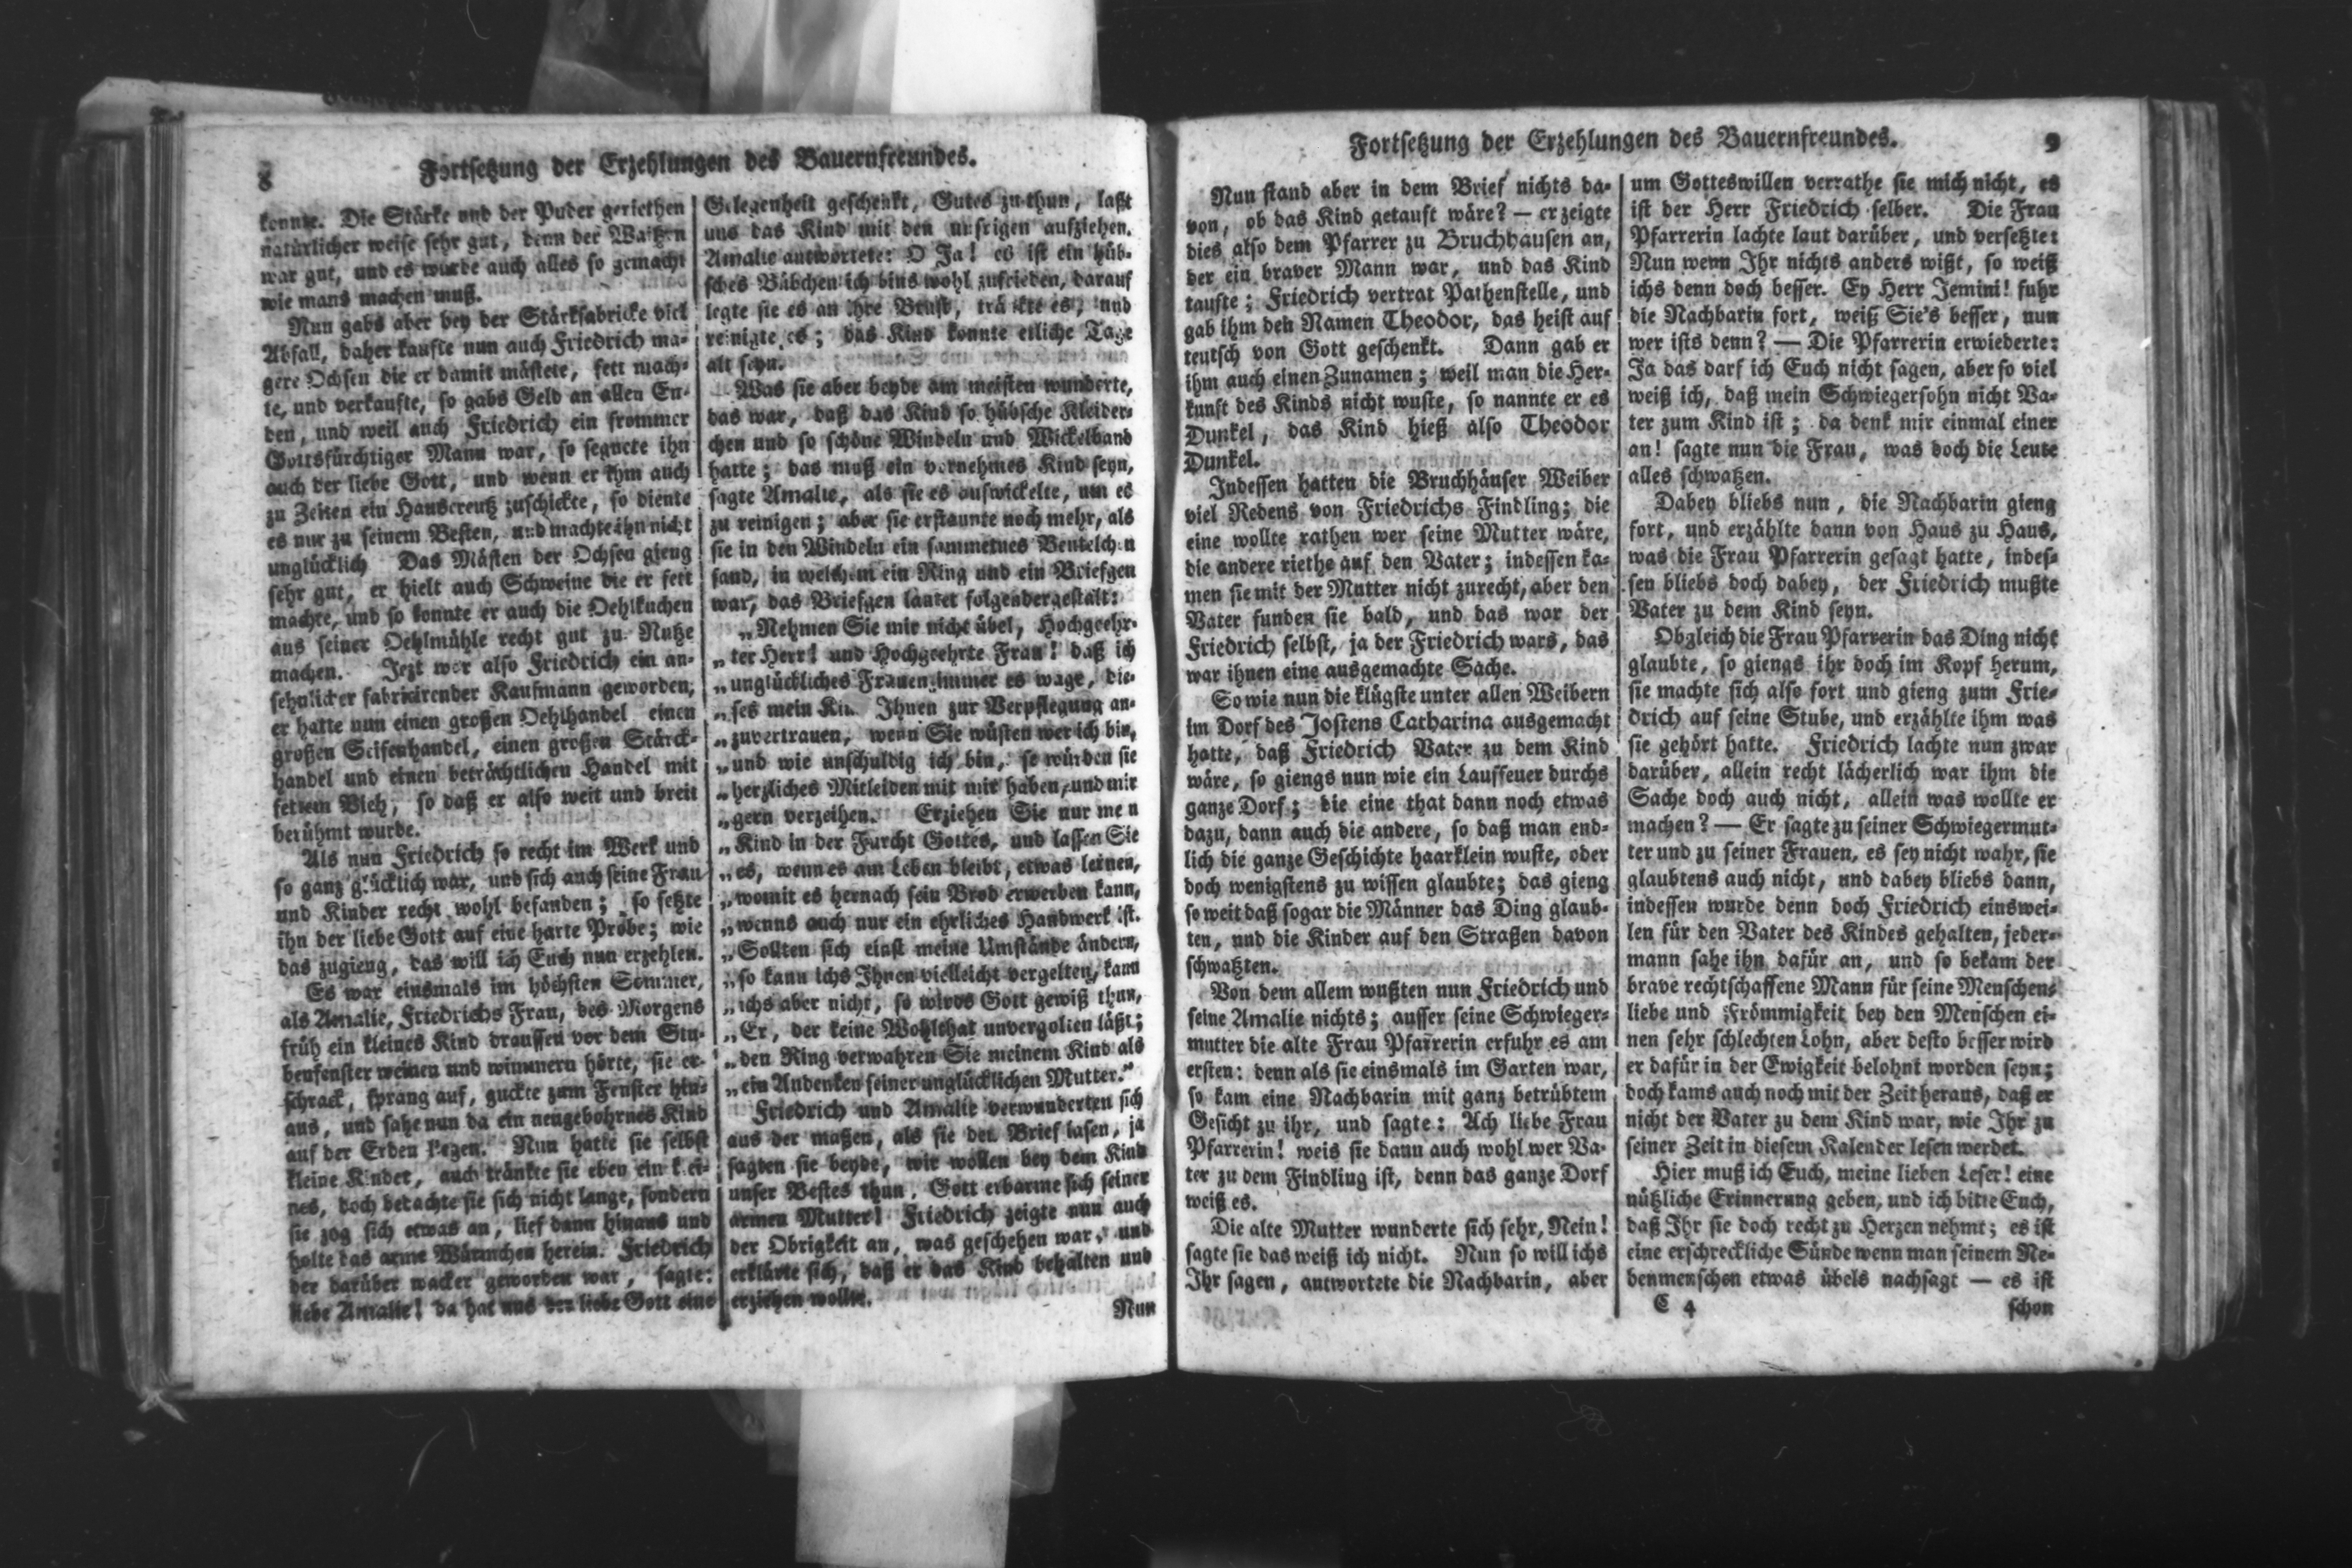 8
Fortsetzung der Erzehlungen des Bauernfreundes.
konnte. Die Stärke und der Puder geriethen
natürlicher weise sehr gut, denn der Waitzen
war gut, und es wurde auch alles so gemacht
wie mans machen muß.
Nun gabs aber bey der Stärkfabricke viel
Abfall, daher kaufte nun auch Friedrich ma-
gere Ochsen die er damit mästete, fett mach-
te, und verkaufte, so gabs Geld an allen En-
den, und weil auch Friedrich ein frommer
Gottsfürchtiger Mann war, so segnete ihn
auch der liebe Gott, und wenn er ihm auch
zu Zeiten ein Hauscreutz zuschickte, so diente
es nur zu seinem Besten, und machte ihn nicht
unglücklich Das Mästen der Ochsen gieng
sehr gut, er hielt auch Schweine die er fett
machte, und so konnte er auch die Oehlkuchen
aus seiner Oehlmühle recht gut zu Nutze
machen. Jezt war also Friedrich ein an-
sehnlicher fabricirender Kaufmann geworden,
er hatte nun einen großen Oehlhandel einen
großen Seifenhandel, einen großen Stärck-
handel und einen beträchtlichen Handel mit
fettem Vieh, so daß er also weit und breit
berühmt wurde.
Als nun Friedrich so recht im Werk und
so ganz glücklich war, und sich auch seine Frau
und Kinder recht wohl befanden; so setzte
ihn der liebe Gott auf eine harte Probe; wie
das zugieng, das will ich Euch nun erzehlen.
Es war einsmals im höchsten Sommer,
als Amalie, Friedrichs Frau, des Morgens
früh ein kleines Kind draussen vor dem Stu-
benfenster weinen und wimmern hörte, sie er-
schrack, sprang auf, guckte zum Fenster hin-
aus, und sahe nun da ein neugebohrnes Kind
auf der Erden liegen. Nun hatte sie selbst
kleine Kinder, auch tränkte sie eben ein klei-
nes, doch bedachte sie sich nicht lange, sondern
sie zog sich etwas an, lief dann hinaus und
holte das arme Würmchen herein. Friedrich
der darüber wacker geworden war, sagte:
liebe Amalie! da hat uns der liebe Gott eine
Gelegenheit geschenkt, Gutes zu thun, laßt
uns das Kind mit den unsrigen aufziehen.
Amalie antwortete: O Ja! es ist ein hüb-
sches Bübchen ich bins wohl zufrieden, darauf
legte sie es an ihre Brust, tränkte es, und
reinigte es; das Kind konnte etliche Tage
alt seyn.
Was sie aber beyde am meisten wunderte,
das war, daß das Kind so hübsche Kleider-
chen und so schöne Windeln und Wickelband
hatte; das muß ein vornehmes Kind seyn,
sagte Amalie, als sie es auswickelte, um es
zu reinigen; aber sie erstaunte noch mehr, als
sie in den Windeln ein sammetnes Beutelchen
fand, in welchem ein Ring und ein Briefgen
war, das Briefgen lautet folgendergestalt:
„Nehmen Sie mir nicht übel, Hochgeehr-
„ter Herr! und Hochgeehrte Frau! daß ich
„unglückliches Frauenzimmer es wage, die-
„ses mein Kind Ihnen zur Verpflegung an-
„zuvertrauen, wenn Sie wüsten wer ich bin,
„und wie unschuldig ich bin, so würden sie
„herzliches Mitleiden mit mir haben, und mir
„gern verzeihen. Erziehen Sie nur mein
„Kind in der Furcht Gottes, und lassen Sie
„es, wenn es am Leben bleibt, etwas lernen,
„womit es hernach sein Brod erwerben kann,
„wenns auch nur ein ehrliches Handwerk ist.
„Sollten sich einst meine Umstände ändern,
„so kann ichs Ihnen vielleicht vergelten, kann
„ichs aber nicht, so wirds Gott gewiß thun,
„Er, der keine Wohlthat unvergolten läßt;
„den Ring verwahren Sie meinem Kind als
„ein Andenken seiner unglücklichen Mutter.“
Friedrich und Amalie verwunderten sich
aus der maßen, als sie den Brief lasen, ja
sagten sie beyde, wir wollen bey dem Kind
unser Bestes thun, Gott erbarme sich seiner
armen Mutter! Friedrich zeigte nun auch
der Obrigkeit an, was geschehen war, und
erklärte sich, daß er das Kind behalten und
erziehen wollte.
Nun
Fortsetzung der Erzehlungen des Bauernfreundes.
9
Nun stand aber in dem Brief nichts da-
von, ob das Kind getauft wäre? — er zeigte
dies also dem Pfarrer zu Bruchhausen an,
der ein braver Mann war, und das Kind
taufte; Friedrich vertrat Pathenstelle, und
gab ihm den Namen Theodor, das heist auf
teutsch von Gott geschenkt. Dann gab er
ihm auch einen Zunamen; weil man die Her-
kunft des Kinds nicht wuste, so nannte er es
Dunkel, das Kind hieß also Theodor
Dunkel.
Indessen hatten die Bruchhäuser Weiber
viel Redens von Friedrichs Findling; die
eine wollte rathen wer seine Mutter wäre,
die andere riethe auf den Vater; indessen ka-
men sie mit der Mutter nicht zurecht, aber den
Vater funden sie bald, und das war der
Friedrich selbst, ja der Friedrich wars, das
war ihnen eine ausgemachte Sache.
So wie nun die klügste unter allen Weibern
im Dorf des Jostens Catharina ausgemacht
hatte, daß Friedrich Vater zu dem Kind
wäre, so giengs nun wie ein Lauffeuer durchs
ganze Dorf; die eine that dann noch etwas
dazu, dann auch die andere, so daß man end-
lich die ganze Geschichte haarklein wuste, oder
doch wenigstens zu wissen glaubte; das gieng
so weit daß sogar die Männer das Ding glaub-
ten, und die Kinder auf den Straßen davon
schwatzten.
Von dem allem wußten nun Friedrich und
seine Amalie nichts; ausser seine Schwieger-
mutter die alte Frau Pfarrerin erfuhr es am
ersten: denn als sie einsmals im Garten war,
so kam eine Nachbarin mit ganz betrübtem
Gesicht zu ihr, und sagte: Ach liebe Frau
Pfarrerin! weis sie dann auch wohl wer Va-
ter zu dem Findling ist, denn das ganze Dorf
weiß es.
Die alte Mutter wunderte sich sehr, Nein!
sagte sie das weiß ich nicht. Nun so will ichs
Ihr sagen, antwortete die Nachbarin, aber
um Gotteswillen verrathe sie mich nicht, es
ist der Herr Friedrich selber. Die Frau
Pfarrerin lachte laut darüber, und versetzte:
Nun wenn Ihr nichts anders wißt, so weiß
ichs denn doch besser. Ey Herr Jemini! fuhr
die Nachbarin fort, weiß Sie's besser, nun
wer ists denn? — Die Pfarrerin erwiederte:
Ja das darf ich Euch nicht sagen, aber so viel
weiß ich, daß mein Schwiegersohn nicht Va-
ter zum Kind ist; da denk mir einmal einer
an! sagte nun die Frau, was doch die Leute
alles schwatzen.
Dabey bliebs nun, die Nachbarin gieng
fort, und erzählte dann von Haus zu Haus,
was die Frau Pfarrerin gesagt hatte, indes-
sen bliebs doch dabey, der Friedrich mußte
Vater zu dem Kind seyn.
Obgleich die Frau Pfarrerin das Ding nicht
glaubte, so giengs ihr doch im Kopf herum,
sie machte sich also fort und gieng zum Frie-
drich auf seine Stube, und erzählte ihm was
sie gehört hatte. Friedrich lachte nun zwar
darüber, allein recht lächerlich war ihm die
Sache doch auch nicht, allein was wollte er
machen? — Er sagte zu seiner Schwiegermut-
ter und zu seiner Frauen, es sey nicht wahr, sie
glaubtens auch nicht, und dabey bliebs dann,
indessen wurde denn doch Friedrich einswei-
len für den Vater des Kindes gehalten, jeder-
mann sahe ihn dafür an, und so bekam der
brave rechtschaffene Mann für seine Menschen-
liebe und Frömmigkeit bey den Menschen ei-
nen sehr schlechten Lohn, aber desto besser wird
er dafür in der Ewigkeit belohnt worden seyn;
doch kams auch noch mit der Zeit heraus, daß er
nicht der Vater zu dem Kind war, wie Ihr zu
seiner Zeit in diesem Kalender lesen werdet.
Hier muß ich Euch, meine lieben Leser! eine
nützliche Erinnerung geben, und ich bitte Euch,
daß Ihr sie doch recht zu Herzen nehmt; es ist
eine erschreckliche Sünde wenn man seinem Ne-
benmenschen etwas übels nachsagt — es ist
C 4
schon